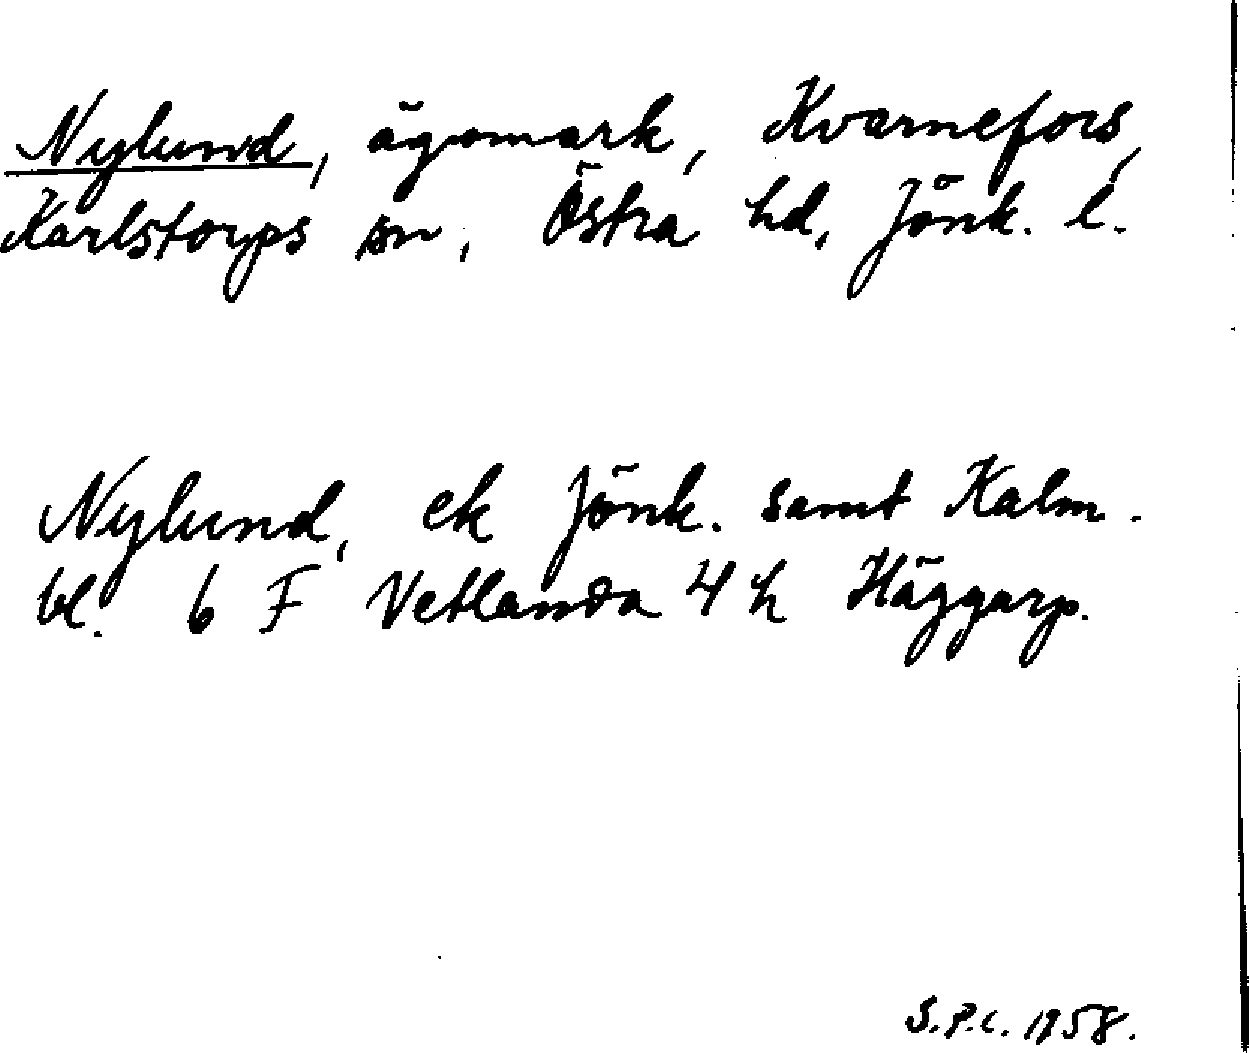 Nylund, ägomark, Kvarnefors,
Karlstorps sn, Östra hd, Jönk. l.
Nylund, ek Jönk. samt Kalm.
bl. 6 F Vetlanda 4 h Häggarp.
S.P.C. 1958.